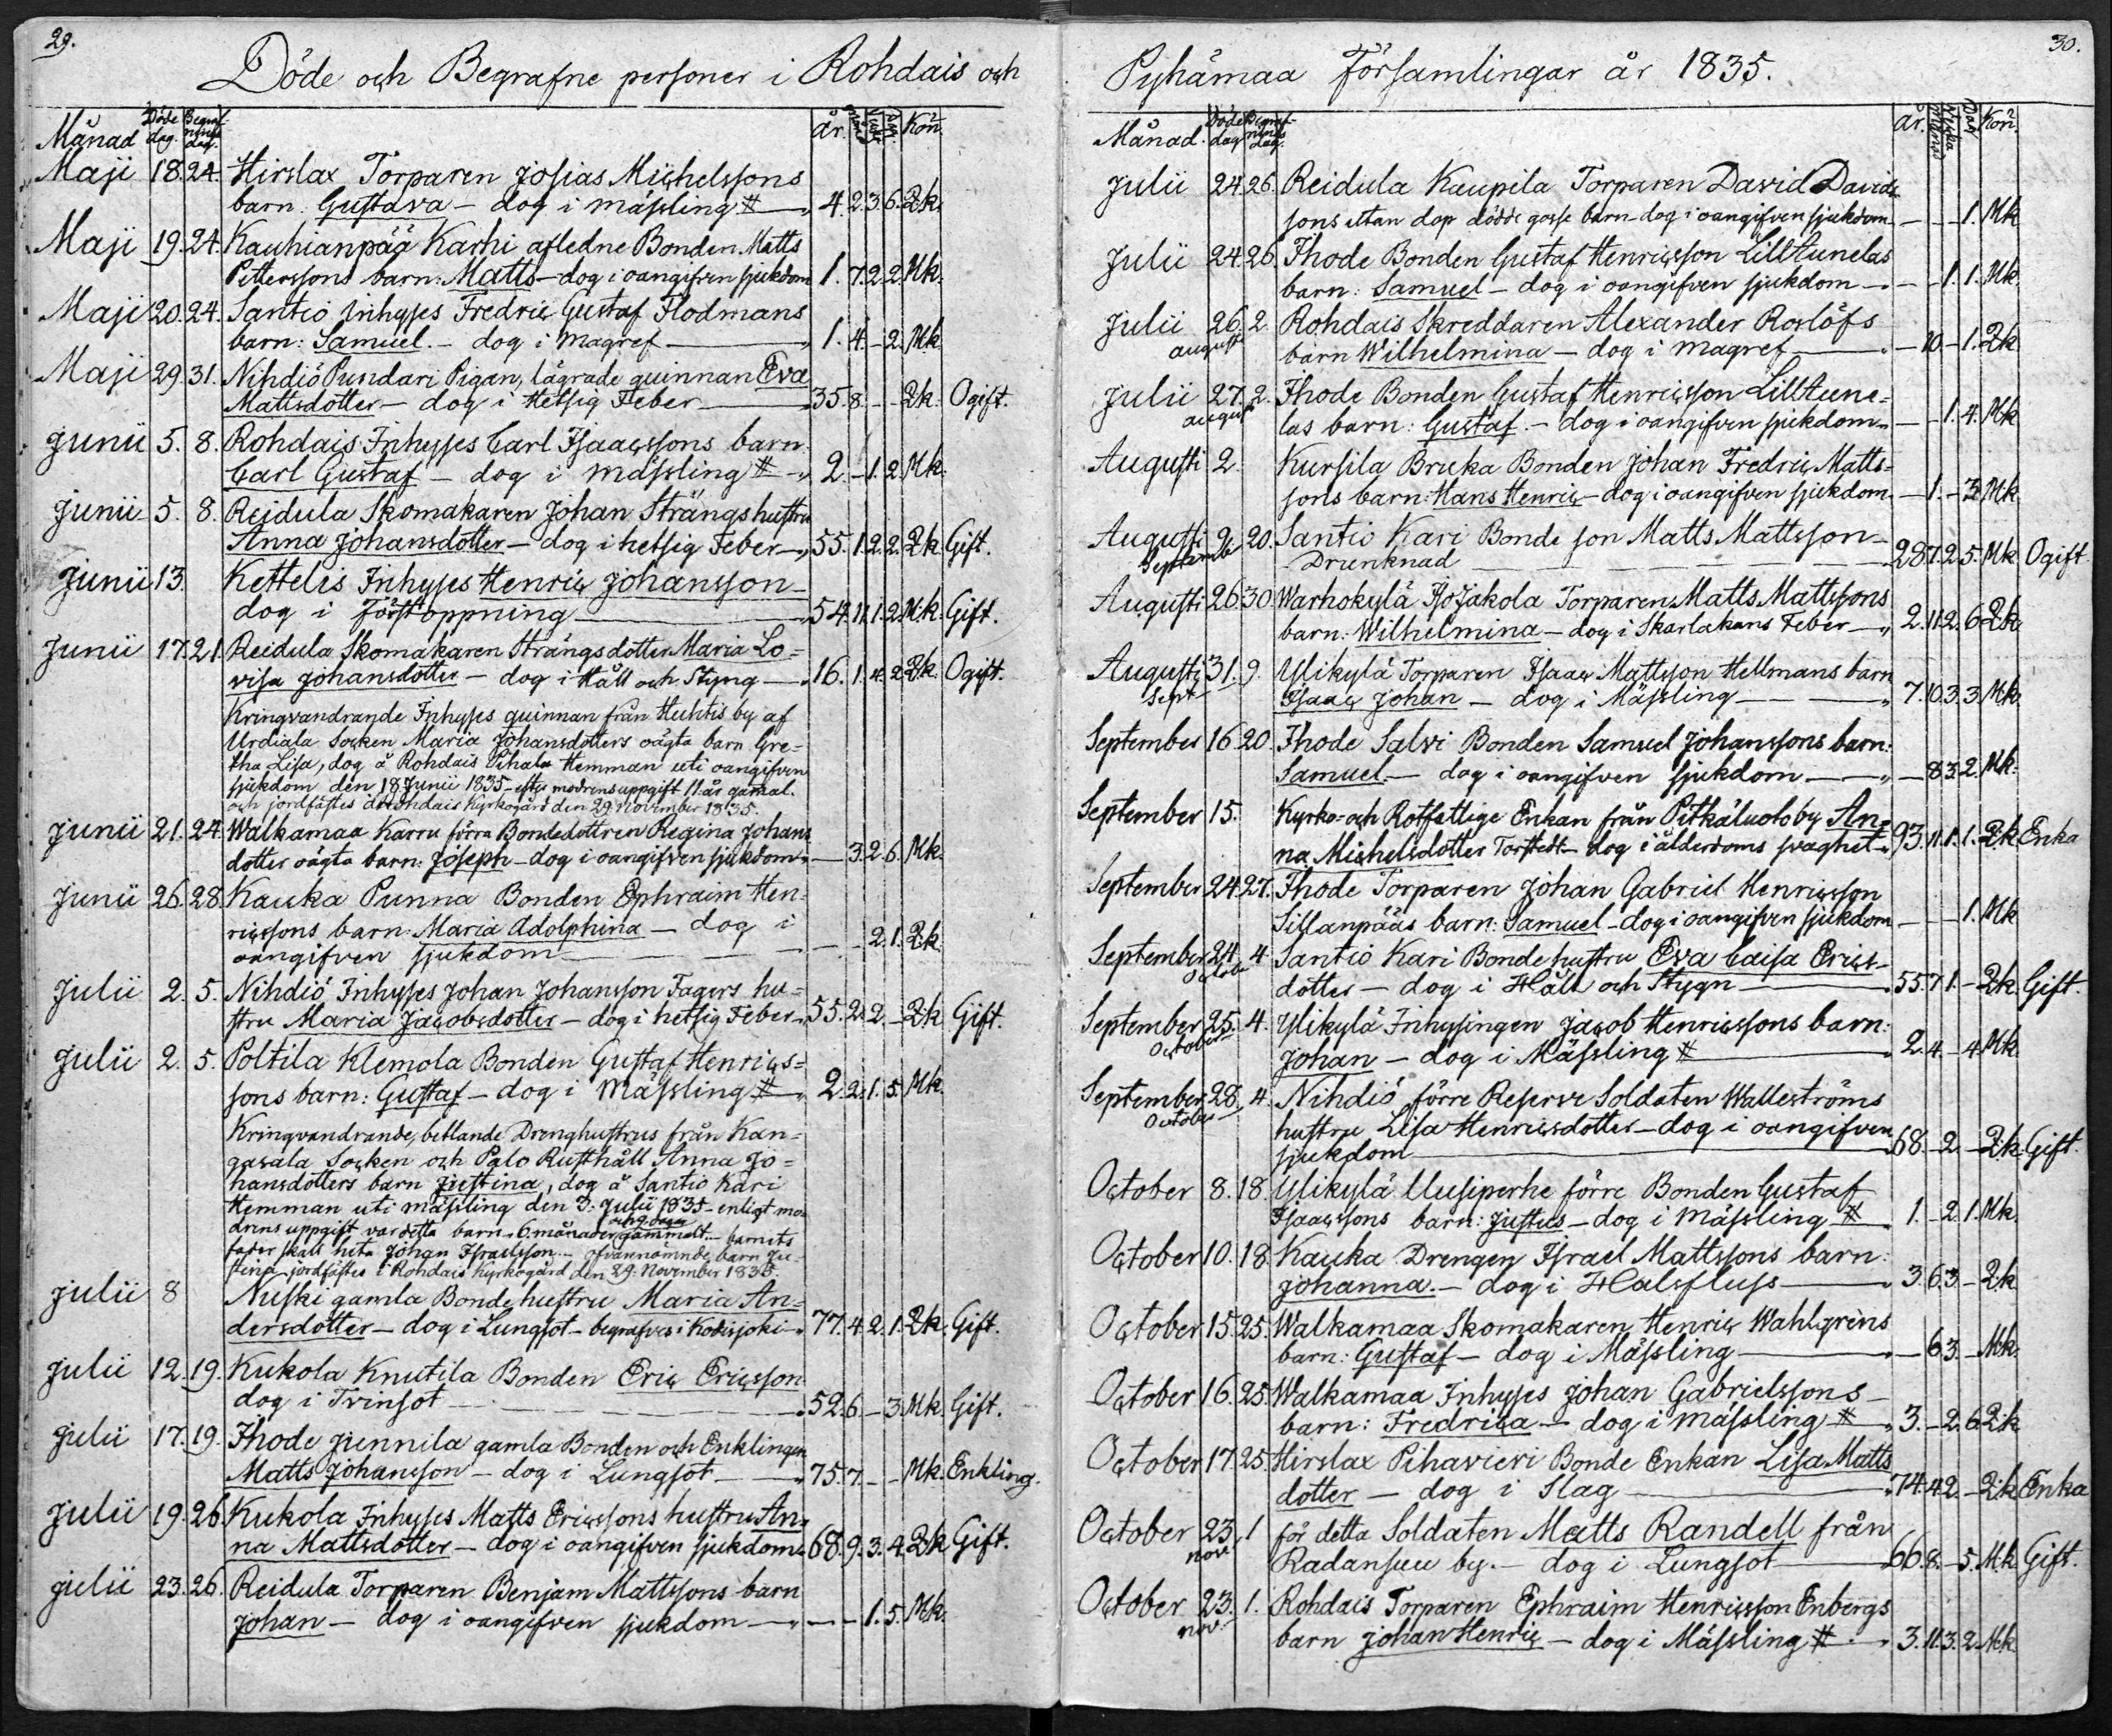 29.
Döde och Begrafne personer i Rohdais och
Månad Döde dag. Begrafnings dag. år. Mån. Vecka Dag. Kön.
Maji 18. 24. Hirslax Torparen Josias Michelssons
barn: Gustava – dog i mässling # – „ 4. 2. 3. 6. Qk.
Maji 19. 24. Kauhianpää Karhi afledne Bonden Matts
Pitterssons barn: Matts – dog i oangifven sjukdom 1. 7. 2. 2. Mk.
Maji 20. 24. Santio Inhyses Fredric Gustaf Flodmans
barn: Samuel. – dog i magref – „ 1. 4. – 2. Mk.
Maji 29. 31. Nihdiö Pundari Pigan, lägrade quinnan Eva
Mattsdotter – dog i Hetsig Feber – „ 35. 8. – – Qk. Ogift.
Junii 5. 8. Rohdais Inhyses Carl Isaacssons barn
Carl Gustaf – dog i mässling # – „ 2. – 1. 2. Mk.
Junii 5. 8. Reidula Skomakaren Johan Strängs hustru
Anna Johansdotter – dog i hetsig Feber – „ 55. 1. 2. 2. Qk Gift.
Junii 13. Kettelis Inhyses Henric Johansson –
dog i Förstoppning – „ 54. 11. 1. 2. Mk. Gift.
Junii 17. 21. Reidula Skomakaren Strängs dotter Maria Lo=
visa Johansdotter – dog i Håll och Styng – „ 16. 1. 4. 2. Qk. Ogift.
Kringvandrande Inhyses quinnan från Huhtis by af
Urdiala Socken Maria Johansdotters oägta barn Gre=
tha Lisa, dog å Rohdais Pihala Hemman uti oangifven
sjukdom den 18 Junii 1835 – efter modrens uppgift 11. år gamal.
och jordfästes å Rohdais Kyrkogård den 29 November 1835.
Junii 21. 24. Walkamaa Karru förra Bondedottren Regina Johans
dotter oägta barn: Joseph – dog i oangifven sjukdom „ – 3. 2. 6. Mk.
Junii 26. 28. Kauka Punna Bonden Ephraim Hen=
ricssons barn: Maria Adolphina – dog i
oangifven sjukdom – – – 2. 1. Qk.
Julii 2. 5. Nihdiö Inhyses Johan Johansson Fagers hu=
stru Maria Jacobsdotter – dog i hetsig Feber „ 55. 2. 2. – Qk Gift.
Julii 2. 5. Poltila Klemola Bonden Gustaf Henrics=
sons barn: Gustaf – dog i Mässling # – „ 2. 2. 1. 5. Mk.
Kringvandrande, betlande Drenghustrus från Kan=
gasala Socken och Palo Rusthåll Anna Jo=
hansdotters barn Justina, dog å Santio Kari
Hemman uti mässling den 3. Julii 1835 – enligt mo=
drens uppgift var detta barn 6. månader och 2. dagar gammalt. – barnets
fader skall heta Johan Israelsson. – ofvannämnde barn Ju=
stina jordfästes i Rohdais Kyrkogård den 29. November 1835.
Julii 8 Nuski gamla Bondehustru Maria An=
dersdotter – dog i Lungsot – begrafves i Kodisjoki – „ 77. 4. 2. 1. Qk. Gift.
Julii 12. 19. Kukola Knutila Bonden Eric Ericsson
dog i Tvinsot – „ 52. 6. – 3. Mk. Gift.
Julii 17. 19. Ihode Junnila gamla Bonden och Enklingen
Matts Johansson – dog i Lungsot – „ 75. 7. – – Mk. Enkling.
Julii 19. 26. Kukola Inhyses Matts Ericssons hustru An=
na Mattsdotter – dog i oangifven sjukdom „ 68. 9. 3. 4. Qk Gift.
Julii 23. 26. Reidula Torparen Benjam Mattssons barn
Johan – dog i oangifven sjukdom – „ – – 1. 5. Mk.
30.
Pyhämaa Församlingar år 1835.
Månad. Döde dag Begrafnings dag. år. Månad Vecka Dag Kön.
Julii 24. 26. Reidula Kaupila Torparen David Davids
sons utan dop dödde gosse barn dog i oangifven sjukdom – – – 1. Mk
Julii 24. 26. Ihode Bonden Gustaf Henricsson LillAunelas
barn: Samuel – dog i oangifven sjukdom – – – 1. 1. Mk.
Julii 26. 2. Rohdais Skreddaren Alexander Roslöfs
augusti barn Wilhelmina – dog i magref – „ – 10 – 1. Qk
Julii 27. 2. Ihode Bonden Gustaf Henricsson LillAune=
august las barn: Gustaf – dog i oangifven sjukdom „ – – 1. 4. Mk
Augusti 2. Kursila Bruka Bonden Johan Fredric Matts=
sons barn: Hans Henric – dog i oangifven sjukdom – 1. – 3. Mk
Augusti 9. 20. Santio Kari Bonde son Matts Mattsson –
Septembr Drunknad – 28. 7. 2. 5. Mk Ogift.
Augusti 26. 30. Warhokylä IsoJakola Torparen Matts Mattssons
barn: Wilhelmina – dog i Skarlakans Feber – „ 2. 11. 2. 6. Qk
Augusti 31. 9. Ylikylä Torparen Isaac Mattsson Hellmans barn
Sept Isaac Johan – dog i Mässling – „ 7. 10. 3. 3. Mk.
September 16. 20. Ihode Salvi Bonden Samuel Johanssons barn:
Samuel. – dog i oangifven sjukdom – „ – 8. 3. 2. Mk.
September 15. Kyrko- och Rotfattige Enkan från Pitkäluoto by An=
na Michelsdotter Torstedt – dog i ålderdoms svaghet „ 93. 11. 1. 1. Qk Enka
September 24. 27. Ihode Torparen Johan Gabriel Henricsson
Sillanpääs barn: Samuel – dog i oangifven sjukdom – – – 1. Mk
September 24. 4. Santio Kari Bonde hustru Eva Caisa Erics=
October dotter – dog i Håll och Stygn – „ 55. 7. 1. – Qk. Gift.
September 25. 4. Ylikylä Inhysingen Jacob Henricssons barn:
October Johan – dog i Mässling # – „ 2. 4. – 4. Mk.
September 28. 4. Nihdiö förre Reserve Soldaten Walleströms
October hustru Lisa Henricsdotter – dog i oangifven
sjukdom – 68. – 2. – Qk. Gift.
October 8. 18. Ylikylä Uusiperhe förre Bonden Gustaf
Isaacssons barn: Justus – dog i mässling # „ 1. – 2. 1. Mk
October 10. 18. Kauka Drengen Israel Mattssons barn:
Johanna. – dog i Halsfluss – „ 3. 6. 3. – Qk
October 15. 25. Walkamaa Skomakaren Henric Wahlgrèns
barn: Gustaf – dog i Mässling – „ – 6. 3. – Mk.
October 16. 25. Walkamaa Inhyses Johan Gabrielssons –
barn: Fredrica – dog i mässling # „ 3. – 2. 6. Qk
October 17. 25. Hirslax Pihavieri Bonde Enkan Lisa Matts
dotter – dog i Slag – „ 74. 4. 2. – Qk Enka
October 23. 1 för detta Soldaten Matts Randell från
nov. Radansuu by. – dog i Lungsot – 66. 8. – 5. Mk Gift.
October 23. 1. Rohdais Torparen Ephraim Henricsson Enbergs
nov. barn Johan Henric – dog i Mässling # – „ 3. 11. 3. 2. Mk